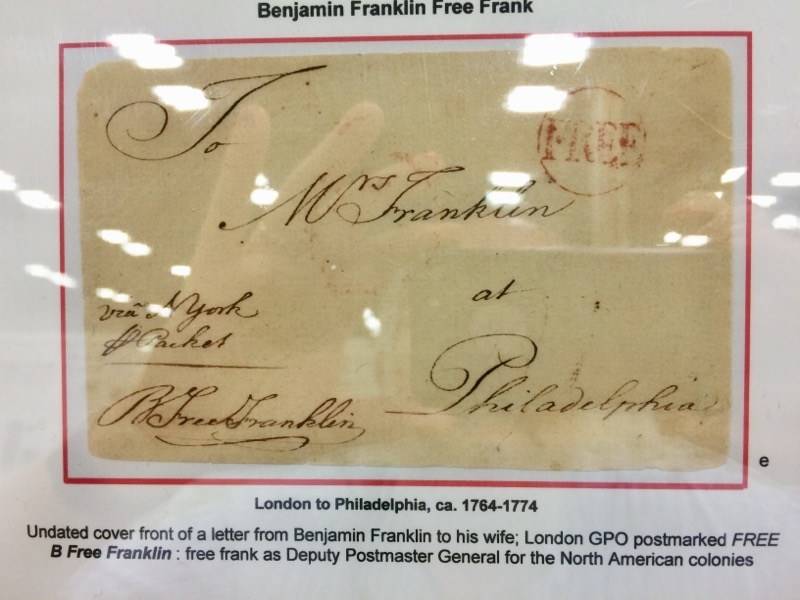 Benjamin Franklin Free Frank
To
FREE
Mrs Franklin
at
via N York
⅌ Packet
Philadelphia
B Free Franklin
e
London to Philadelphia, ca. 1764-1774
Undated cover front of a letter from Benjamin Franklin to his wife; London GPO postmarked FREE
B Free Franklin : free frank as Deputy Postmaster General for the North American colonies